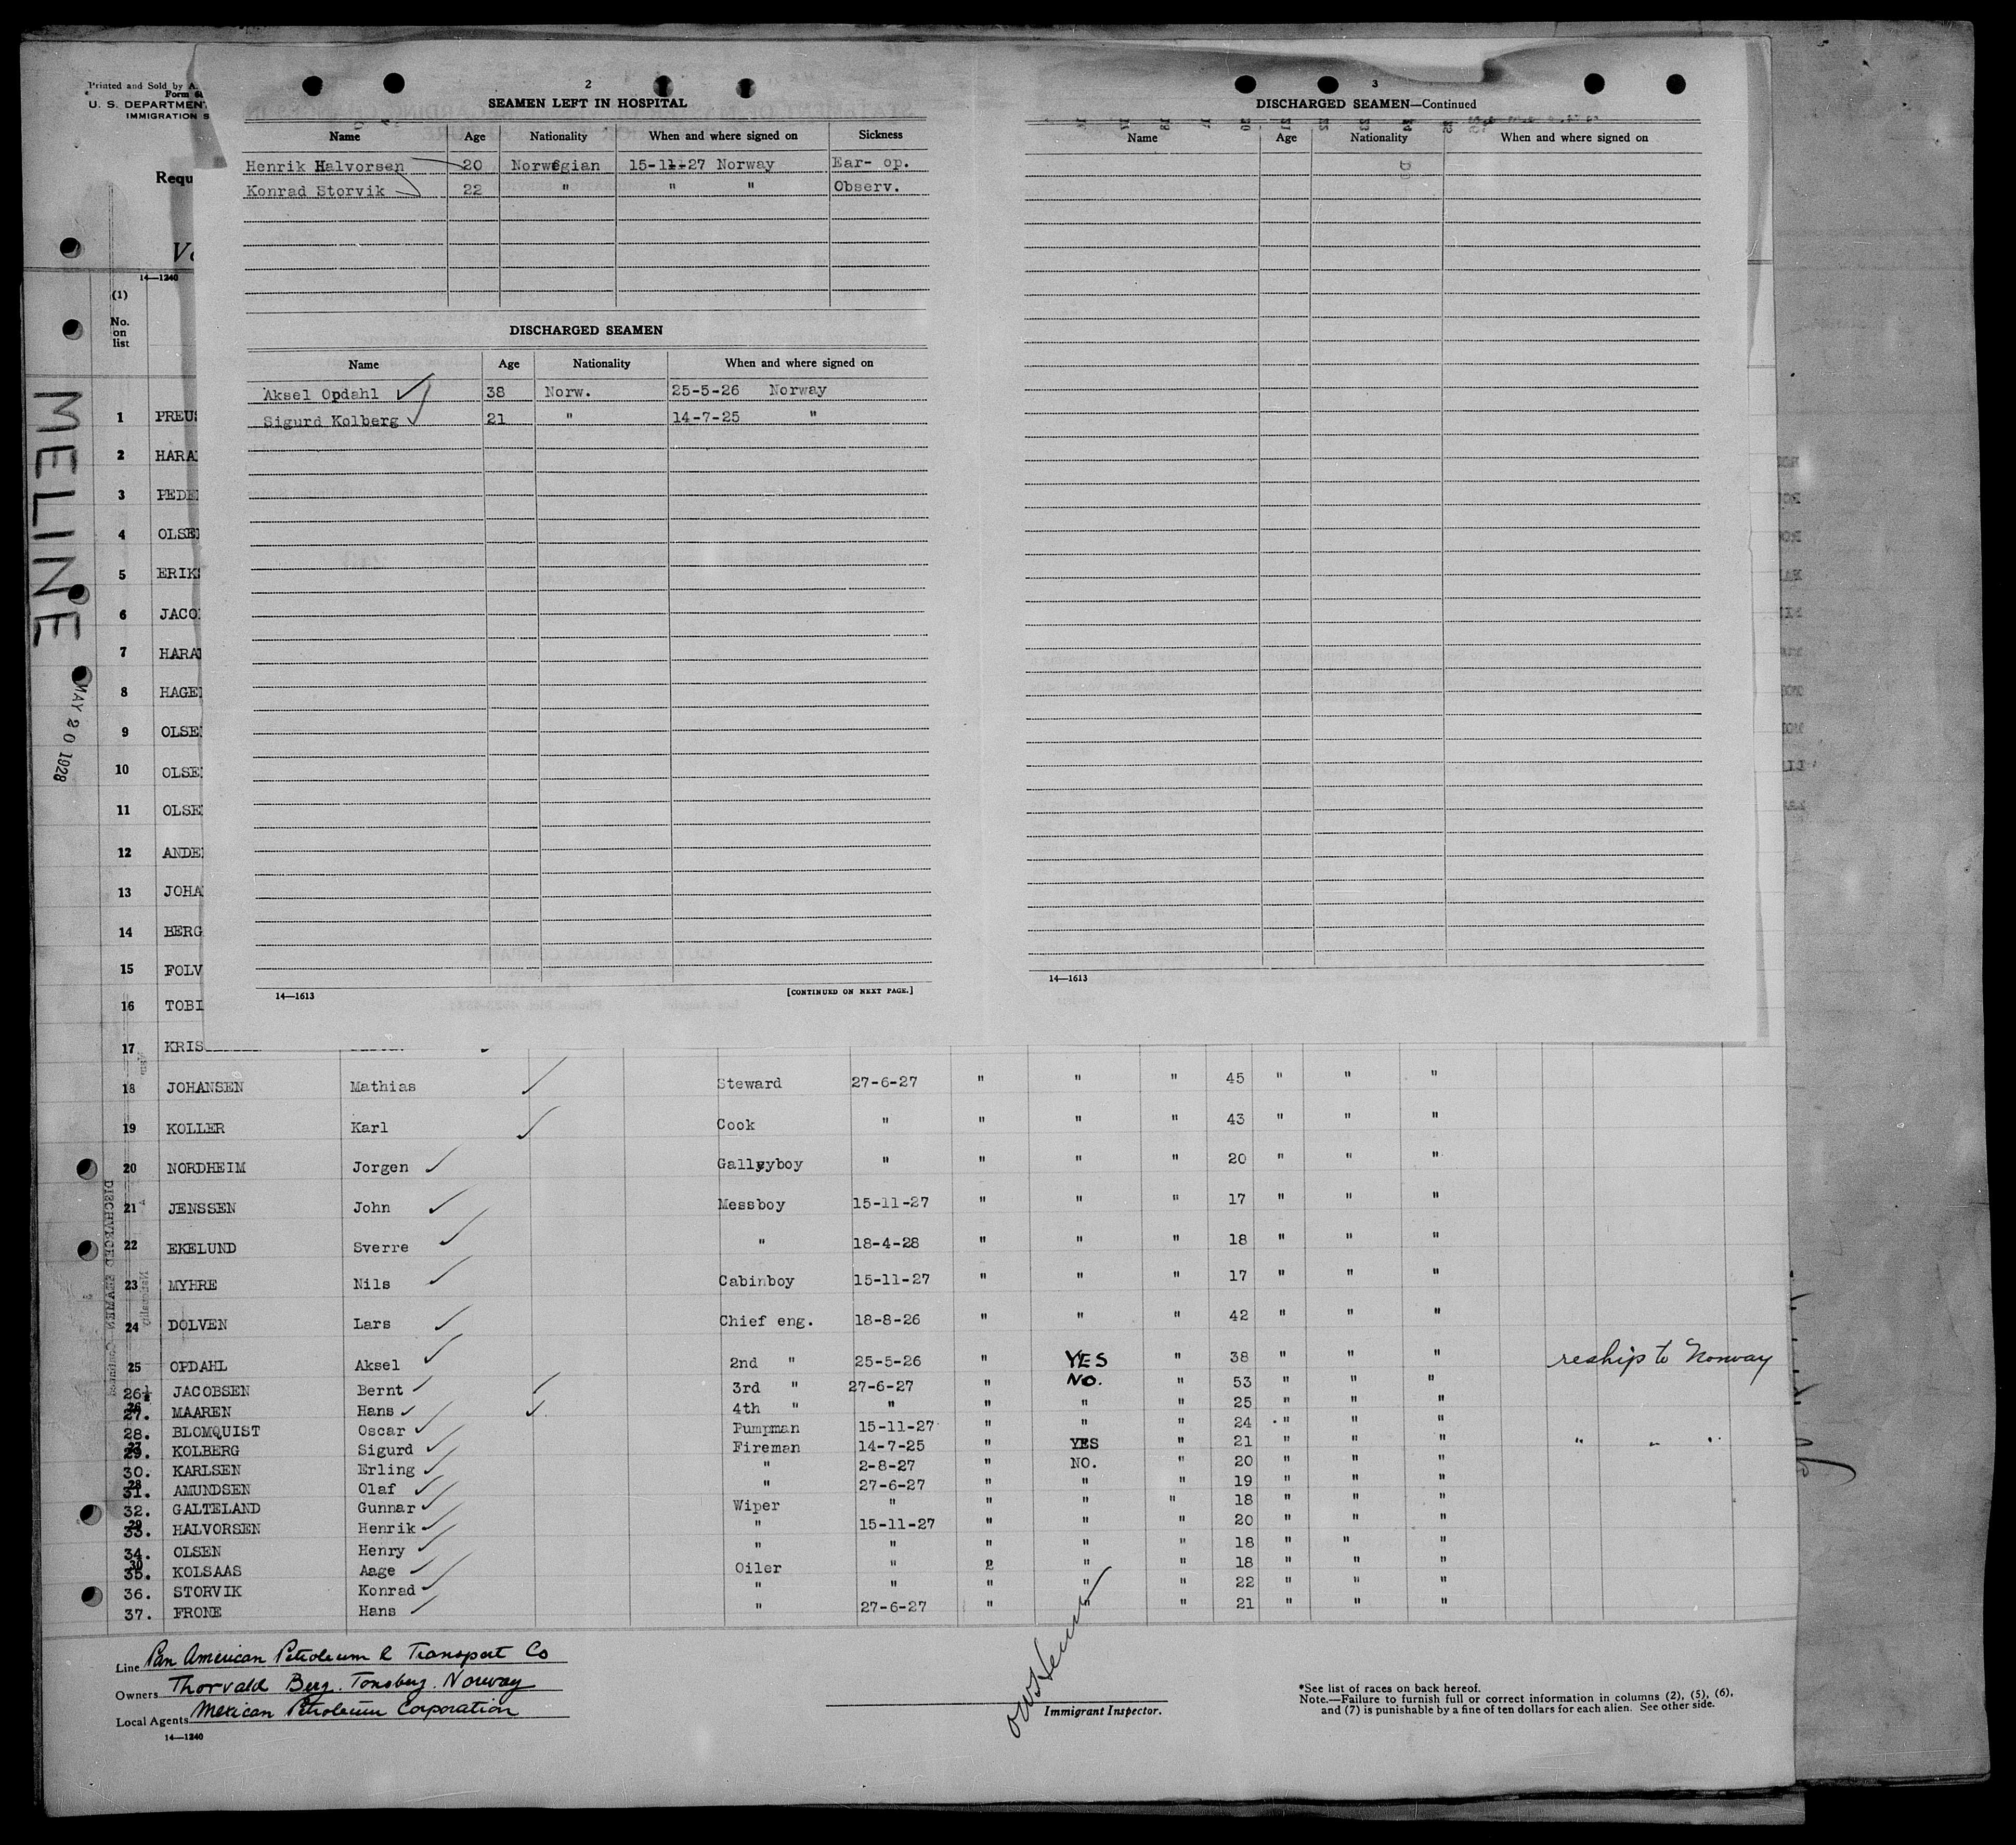 Printed and Sold by A.
Form 6
U. S. DEPARTMENT
IMMIGRATION S
Requ
14—1240
(1)
No.
on
list
MELINE
MAY 20 1928
2
SEAMEN LEFT IN HOSPITAL
Name Age Nationality When and where signed on Sickness
Henrik Halvorsen 20 Norwegian 15-11-27 Norway Ear- op.
Konrad Storvik 22 " " " Observ.
DISCHARGED SEAMEN
Name Age Nationality When and where signed on
Aksel Opdahl ✓ 38 Norw. 25-5-26 Norway
Sigurd Kolberg ✓ 21 " 14-7-25 "
14—1613 [CONTINUED ON NEXT PAGE.]
3
DISCHARGED SEAMEN—Continued
Name Age Nationality When and where signed on
14—1613
1 PREUS
2 HARA
3 PEDE
4 OLSE
5 ERIK
6 JACO
7 HARA
8 HAGE
9 OLSE
10 OLSE
11 OLSE
12 ANDE
13 JOHA
14 BERG
15 FOLV
16 TOBI
17 KRIS
18 JOHANSEN Mathias ✓ Steward 27-6-27 " " " 45 " " "
19 KOLLER Karl ✓ Cook " " " " 43 " " "
20 NORDHEIM Jorgen ✓ Galleyboy " " " " 20 " " "
21 JENSSEN John ✓ Messboy 15-11-27 " " " 17 " " "
22 EKELUND Sverre ✓ " 18-4-28 " " " 18 " " "
23 MYHRE Nils ✓ Cabinboy 15-11-27 " " " 17 " " "
24 DOLVEN Lars ✓ Chief eng. 18-8-26 " " " 42 " " "
25 OPDAHL Aksel ✓ 2nd " 25-5-26 " YES " 38 " " " reship to Norway
26. JACOBSEN Bernt ✓ ✓ 3rd " 27-6-27 " NO. " 53 " " "
27. MAAREN Hans ✓ ✓ 4th " " " " " 25 " " "
28. BLOMQUIST Oscar ✓ Pumpman 15-11-27 " " " 24 " " "
29. KOLBERG Sigurd ✓ Fireman 14-7-25 " YES " 21 " " " " " "
30. KARLSEN Erling ✓ " 2-8-27 " NO. " 20 " " "
31. AMUNDSEN Olaf ✓ " 27-6-27 " " " 19 " " "
32. GALTELAND Gunnar ✓ Wiper " " " " 18 " " "
33. HALVORSEN Henrik ✓ " 15-11-27 " " " 20 " " "
34. OLSEN Henry ✓ " " " " " 18 " " "
35. KOLSAAS Aage ✓ Oiler " 2 " " 18 " " "
36. STORVIK Konrad ✓ " " " " " 22 " " "
37. FRONE Hans ✓ " 27-6-27 " " " 21 " " "
Line Pan American Petroleum & Transport Co
Owners Thorvald Berg. Tonsberg. Norway
Local Agents Mexican Petroleum Corporation
14—1240
Immigrant Inspector.
*See list of races on back hereof.
Note.—Failure to furnish full or correct information in columns (2), (5), (6),
and (7) is punishable by a fine of ten dollars for each alien. See other side.